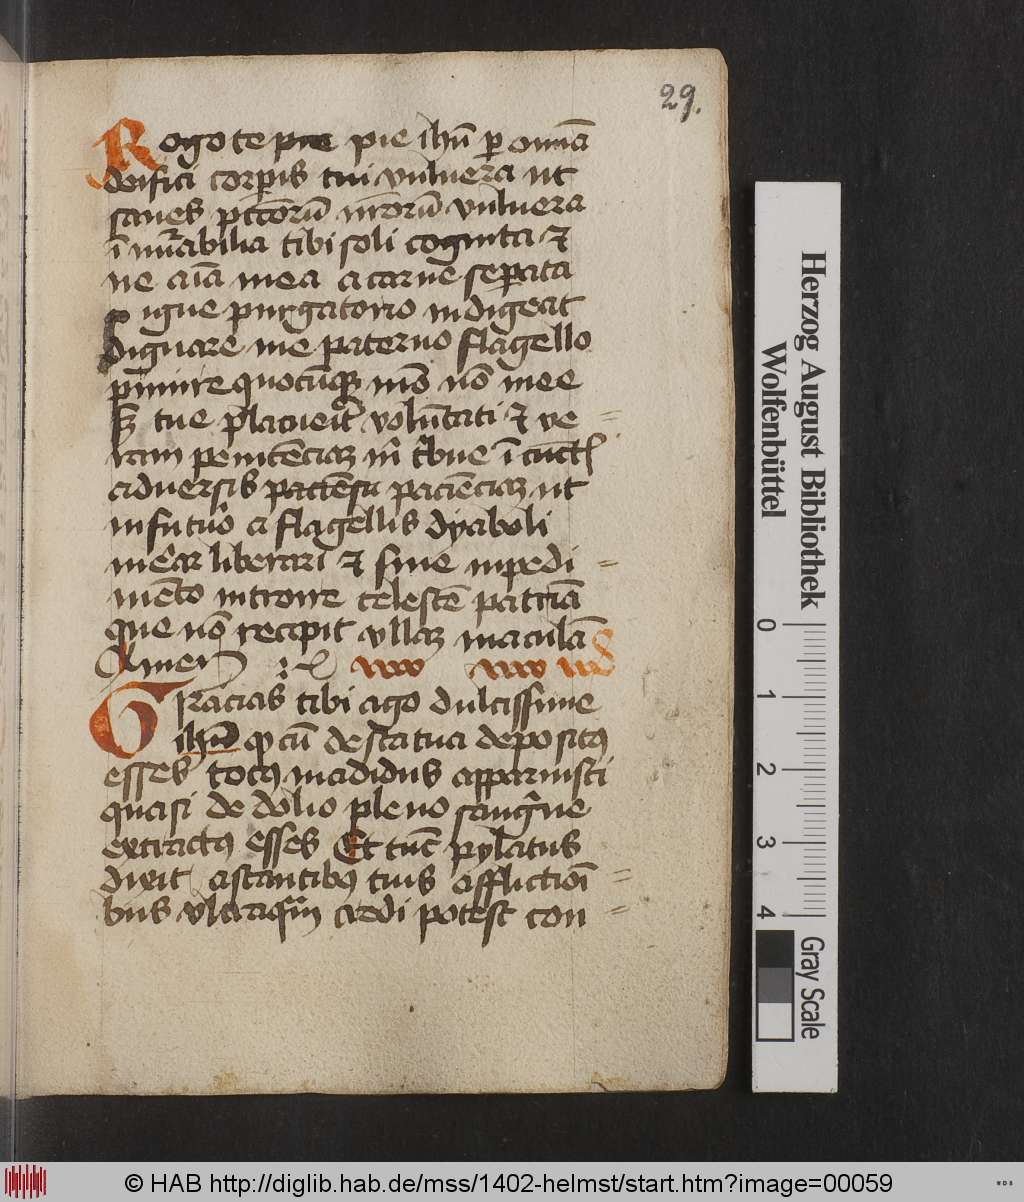 29.
Rogo te pie ihū ꝑ omīa
deifici corꝑis tui vulnera ut
sanes pctōrū meorū vulnera
īnūabilia tibi soli cognita ⁊
ne aīa mea a carne seꝑata
igne purgatorio indigeat
dignare me paterno flagello
punire quocūqꝫ mō nō mee
sꝫ tue placuerit volūtati ⁊ ve
ram penitēciaꝫ m̄ tbue ī cūctꝭ
aduersis paciēciaꝫ ut
in futuro a flagellis dyaboli
mear liberari ⁊ sine inpedi
mēto introire celestē patriā
que nō recipit vllaꝫ maculā
Amen
Gracias tibi ago dulcissime
ihū ꝙ cū de statua depositꝰ
esses totꝰ madidus apparuisti
quasi de dolio pleno sangᵉne
extractꝰ esses Et tūc pylatus
dixit astantibꝰ tuis afflictiōi
bus vltra credi potest con
Herzog August Bibliothek
Wolfenbüttel
0 1 2 3 4
Gray Scale
© HAB http://diglib.hab.de/mss/1402-helmst/start.htm?image=00059